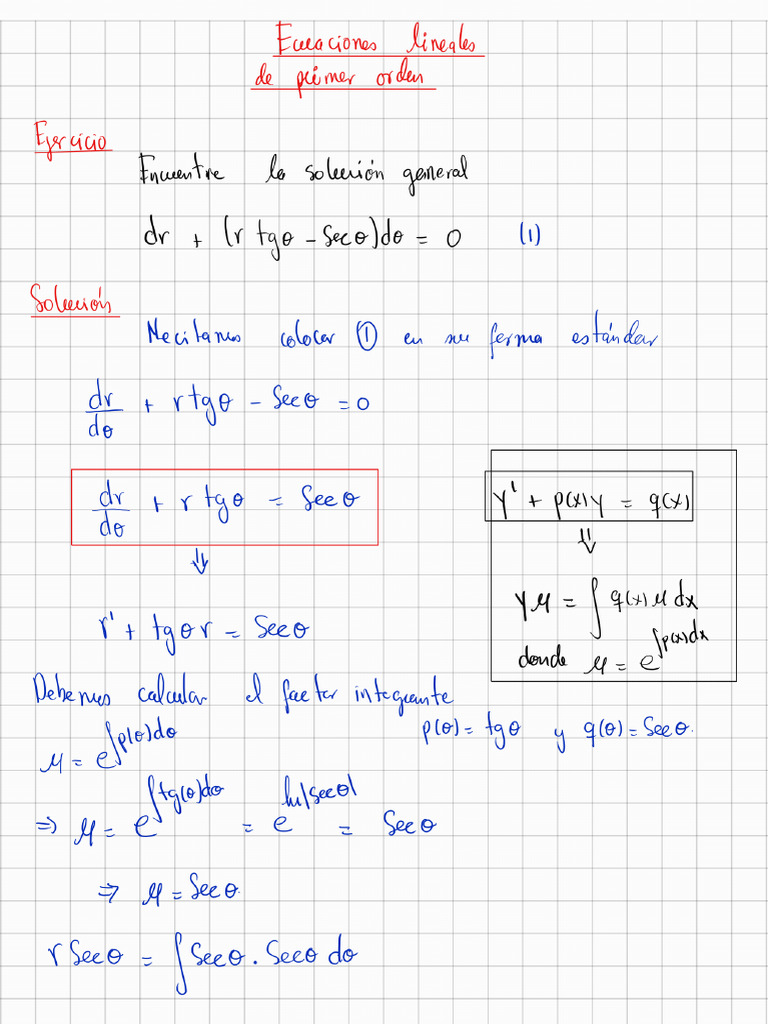 Ecuaciones lineales
de primer orden
Ejercicio
Encuentre la solución general
dr + (r tgθ - Secθ)dθ = 0 (1)
Solución
Necitamos colocar ① en su forma estándar
dr/dθ + r tgθ - Secθ = 0
dr/dθ + r tgθ = Secθ
y' + p(x)y = q(x)
⇓
⇓
yμ = ∫ q(x) μ dx
r' + tgθ r = Secθ
donde μ = e^∫p(x)dx
Debemos calcular el factor integrante
p(θ) = tgθ y q(θ) = Secθ.
μ = e^∫p(θ)dθ
⇒ μ = e^∫tg(θ)dθ = e^ln|secθ| = Secθ
⇒ μ = Secθ.
r Secθ = ∫ Secθ . Secθ dθ